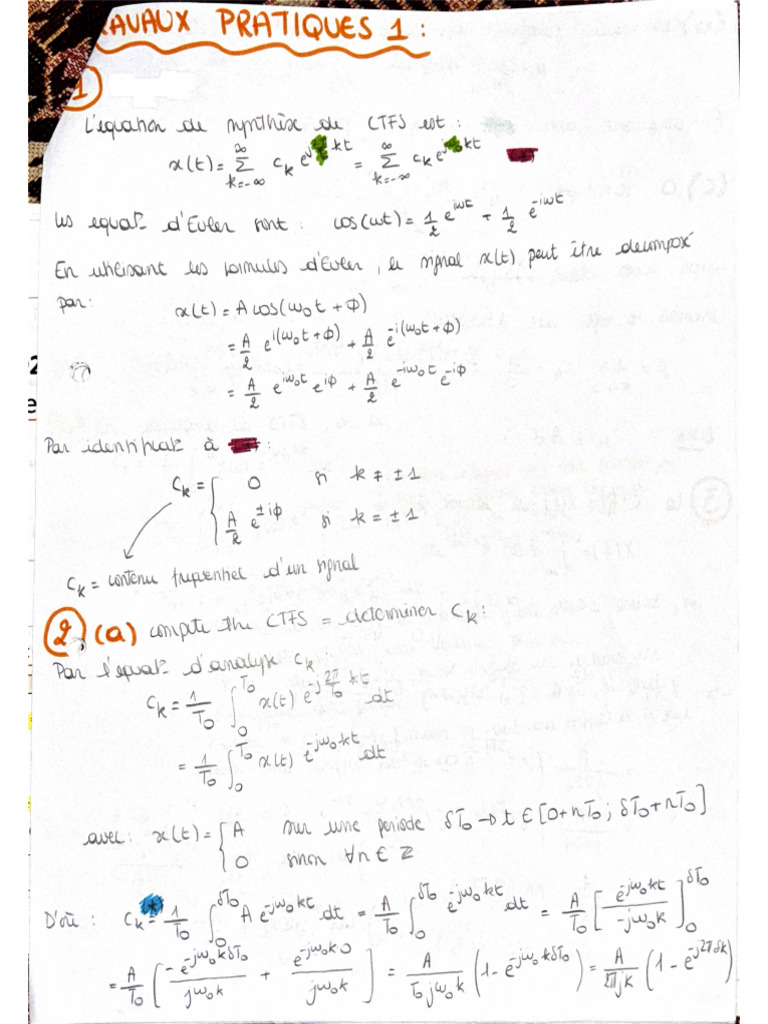 RAVAUX PRATIQUES 1 :
1
L'equation de synthèse de CTFS est :
x(t) = ∑_{k=-∞}^{∞} c_k e^{j 2π/T₀ kt} = ∑_{k=-∞}^{∞} c_k e^{jω₀kt} (*)
les equat° d'Euler sont : cos(ωt) = 1/2 e^{iωt} + 1/2 e^{-iωt}
En utilisant les formules d'Euler, le signal x(t) peut être decomposé
par : x(t) = A cos(ω₀t + ϕ)
= A/2 e^{i(ω₀t + ϕ)} + A/2 e^{-i(ω₀t + ϕ)}
= A/2 e^{iω₀t} e^{iϕ} + A/2 e^{-iω₀t} e^{-iϕ}
Par identificat° à (*) :
c_k = { 0 si k ≠ ±1
A/2 e^{±iϕ} si k = ±1
c_k = contenu frequentiel d'un signal
2, (a) compute the CTFS = determiner c_k :
Par l'equat° d'analyse c_k
c_k = 1/T₀ ∫₀^{T₀} x(t) e^{-j 2π/T₀ kt} dt
= 1/T₀ ∫₀^{T₀} x(t) e^{-jω₀kt} dt
avec : x(t) = { A sur une periode δT₀ → t ∈ [0+nT₀ ; δT₀+nT₀]
0 sinon ∀n ∈ ℤ
D'où : c_k (*) = 1/T₀ ∫₀^{δT₀} A e^{-jω₀kt} dt = A/T₀ ∫₀^{δT₀} e^{-jω₀kt} dt = A/T₀ [e^{-jω₀kt}/-jω₀k]₀^{δT₀}
= A/T₀ [-e^{-jω₀kδT₀}/jω₀k + e^{-jω₀k0}/jω₀k] = A/T₀jω₀k (1 - e^{-jω₀kδT₀}) = A/2πjk (1 - e^{-j2πδk})